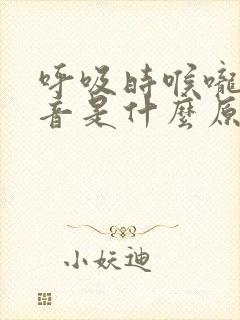 呼吸时喉嚨
音是什麼原
小妖迪